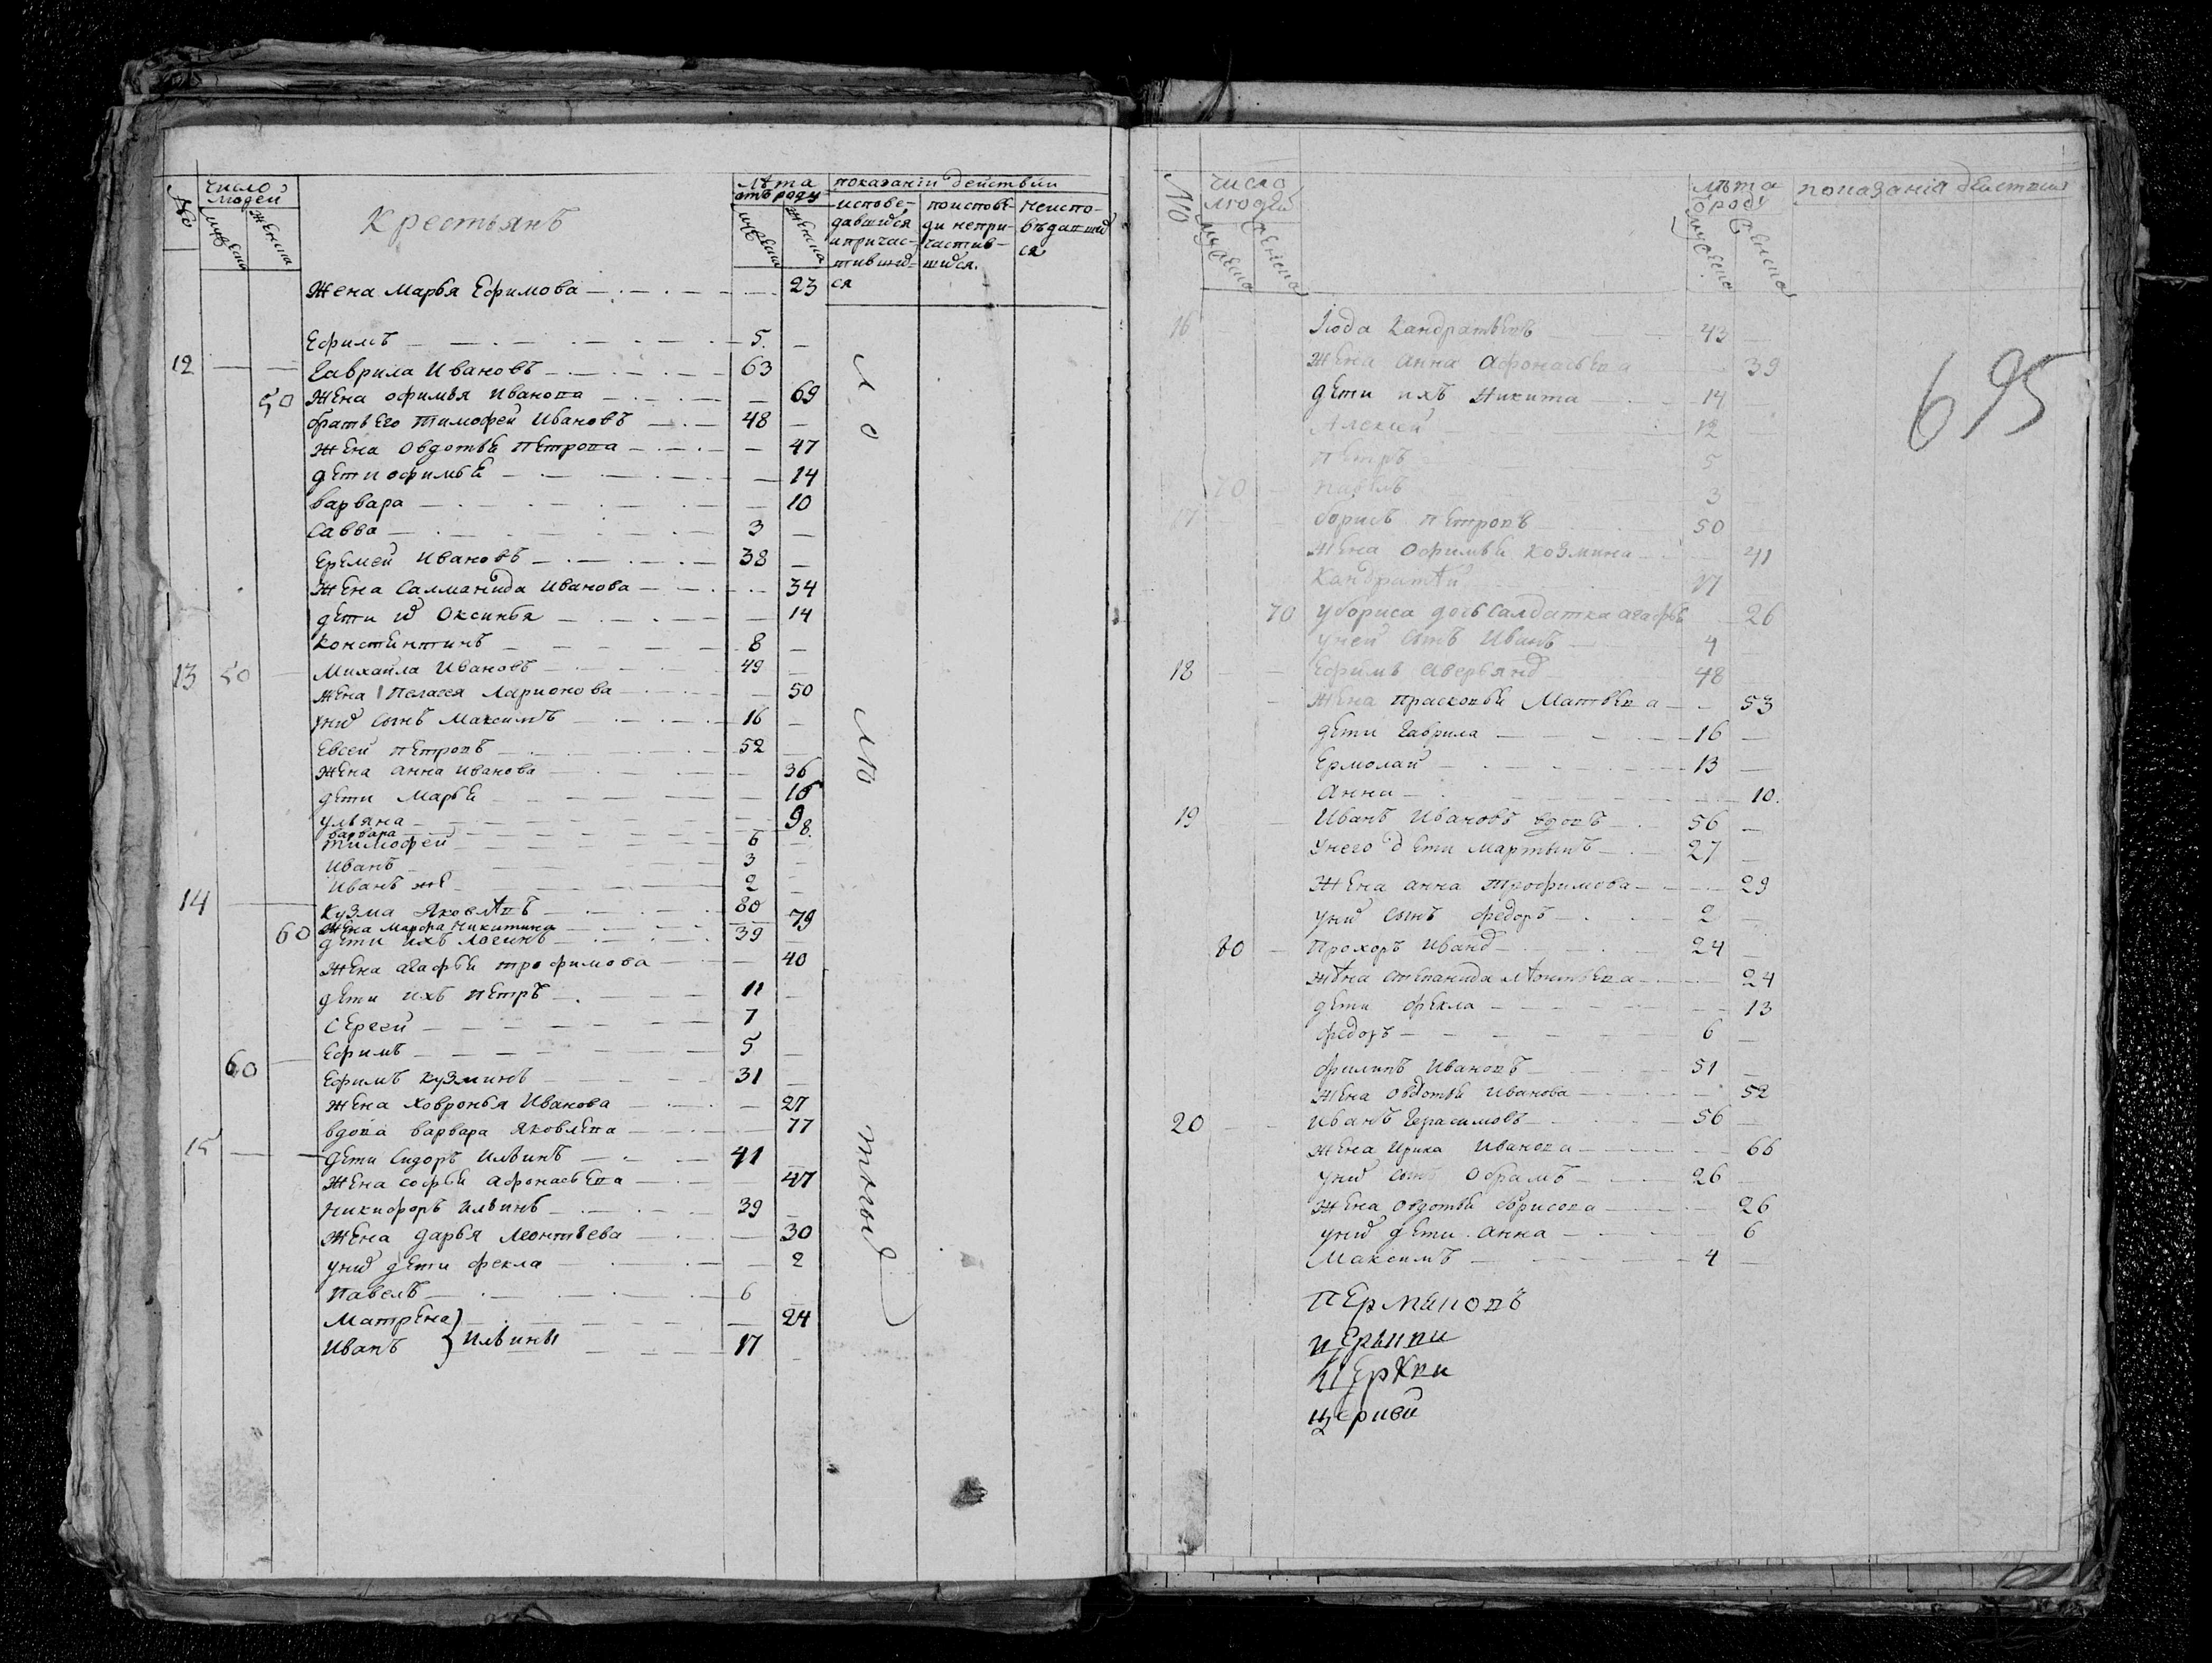 №
число людей
мужеска
женска
Крестьянъ
лѣта отъ роду
мужеска
женска
показаніи действіи
исповедавшихся и причастившихся
поисповеди непричастившихся.
неисповѣдавшихся
Жена Марья Ефимова 23
Ефимъ 5.
12 Гаврила Ивановъ 63
50 Жена офимья Иванова 69
братъ Его Тимофей Ивановъ 48
Жена Овдотья Петрова 47
дети офимья 14
варвара 10
Савва 3
Еремей Ивановъ 38
Жена Салманида Иванова 34
дети их Оксинья 14
констентинъ 8
13 50 Михайла Ивановъ 49
Жена Пелагея Ларионова 50
у них сынъ Максимъ 16
Евсей петровъ 52
Жена анна Иванова 36
дети Марья 16
ульяна 9
варвара 8.
тимофей 6
Иванъ 3
Иванъ же 2
14 Кузма Яковлевъ 80
60 Жена Марфа Никитина 79
дети ихъ логинъ 39
Жена агафья трофимова 40
дети ихъ петръ 11
Сергей 7
Ефимъ 5
60 Ефимъ кузминъ 31
Жена ховронья Иванова 27
вдова варвара яковлева 77
15 дети Сидоръ ильинъ 41
Жена софья афонасьева 47
никифоръ ильинъ 39
Жена дарья леонтьева 30
у них дети фекла 2
павелъ 6
Матрена 24
Иванъ } ильины 17
№
число людей
мужеска
женска
лѣта о роду
мужеска
женска
показанія действия
695
16 Июда Кандратьевъ 43
Жена анна афонасьева 39
дети ихъ Никита 14
Алексей 12
петръ 5
70 павелъ 3
17 борисъ петровъ 50
Жена офимья козмина 41
Кандратей 17
70 у бориса дочь салдатка агафья 26
у ней сынъ Иванъ 4
18 Ефимъ аверьянов 48
Жена прасковья Матвева 53
дети гаврила 16
Ермолай 13
анна 10.
19 Иванъ Ивановъ вдовъ 56
у него дети мартынъ 27
Жена анна трофимова 29
у них сынъ федоръ 2
80 Прохоръ Иванов 24
Жена степанида леонтьева 24
дети фекла 13
федоръ 6
филипъ Ивановъ 51
Жена овдотья Иванова 52
20 Иванъ герасимовъ 56
Жена Ирина Иванова 66
у них сынъ обрамъ 26
Жена овдотья борисова 26
у них дети анна 6
Максимъ 4